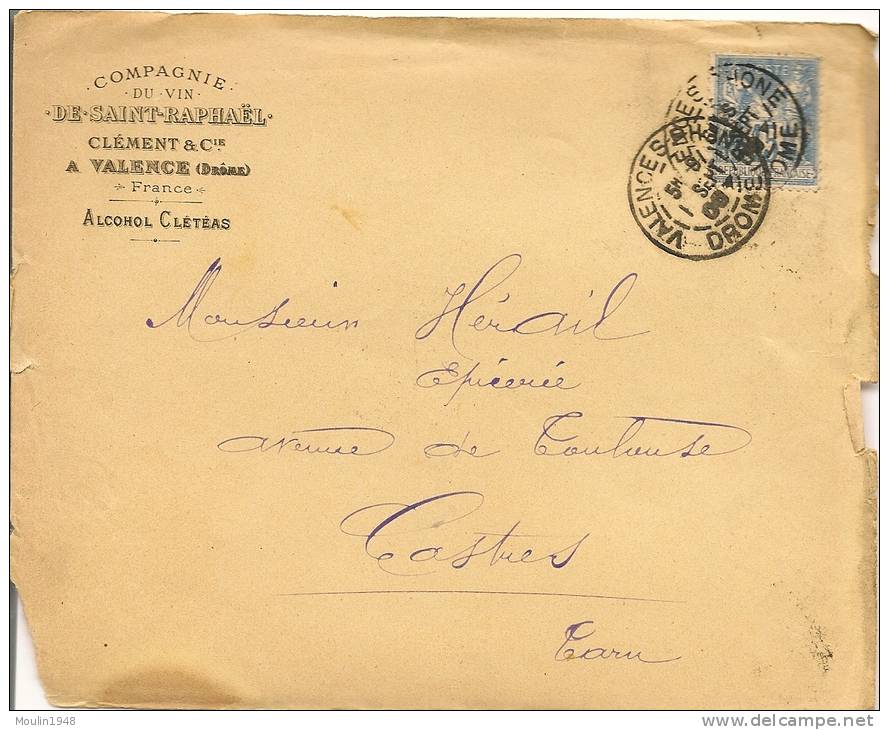 COMPAGNIE
· DU · VIN ·
· DE · SAINT-RAPHAËL ·
CLÉMENT & CIE
A VALENCE (DRÔME)
France
ALCOHOL CLÉTÉAS
VALENCE S RHONE
DROME
Monsieur Hérail
Epicerie
avenue de Toulouse
Castres
Tarn
Moulin1948
delcampe.net